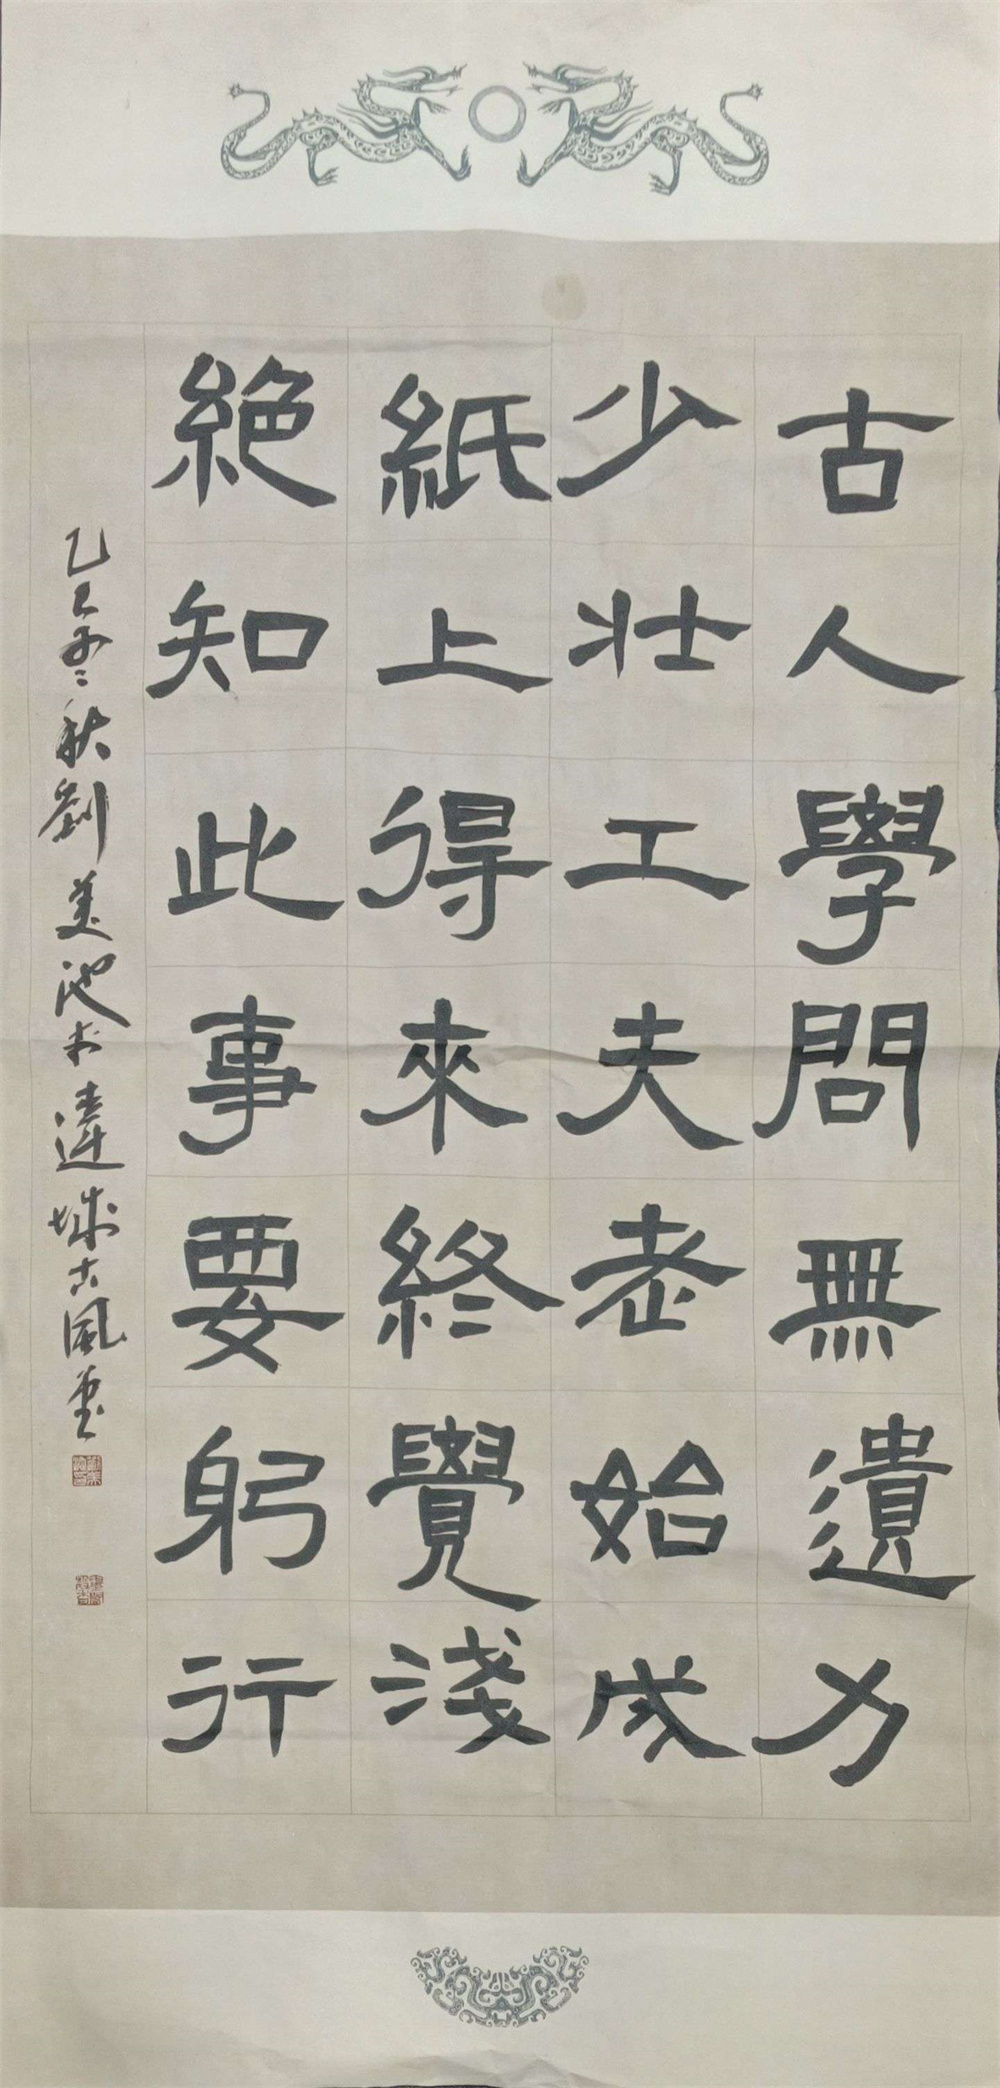 古人學問無遺力
少壯工夫老始成
紙上得來終覺淺
絕知此事要躬行
乙巳年秋劉美池於達城古風堂